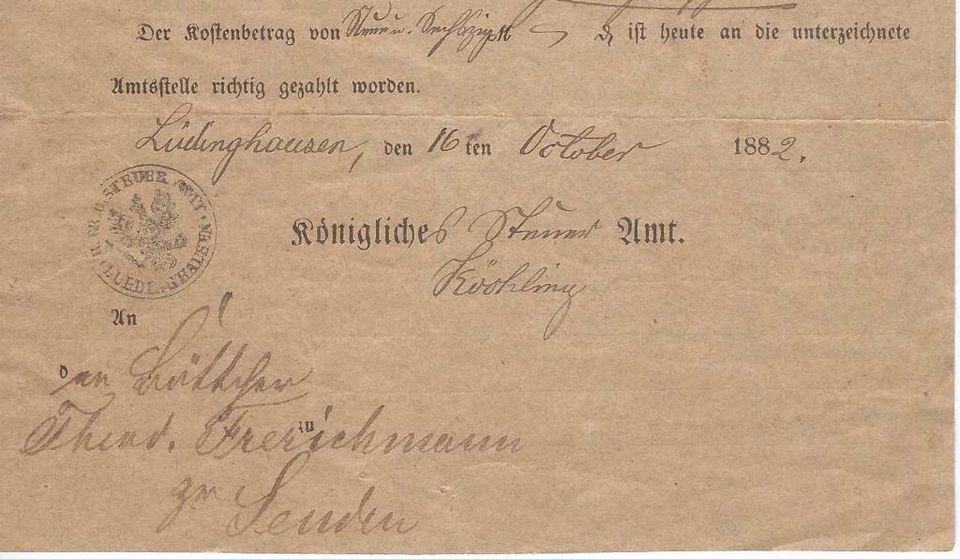 Der Kostenbetrag von Neun u. Sechszig M ist heute an die unterzeichnete
Amtsstelle richtig gezahlt worden.
Lüdinghausen, den 16ten October 1882.
STEUER AMT
LUEDINGHAUSEN
Königliches Steuer Amt.
An
den Böttcher
Theod. Frerichmann
zu
zu Senden